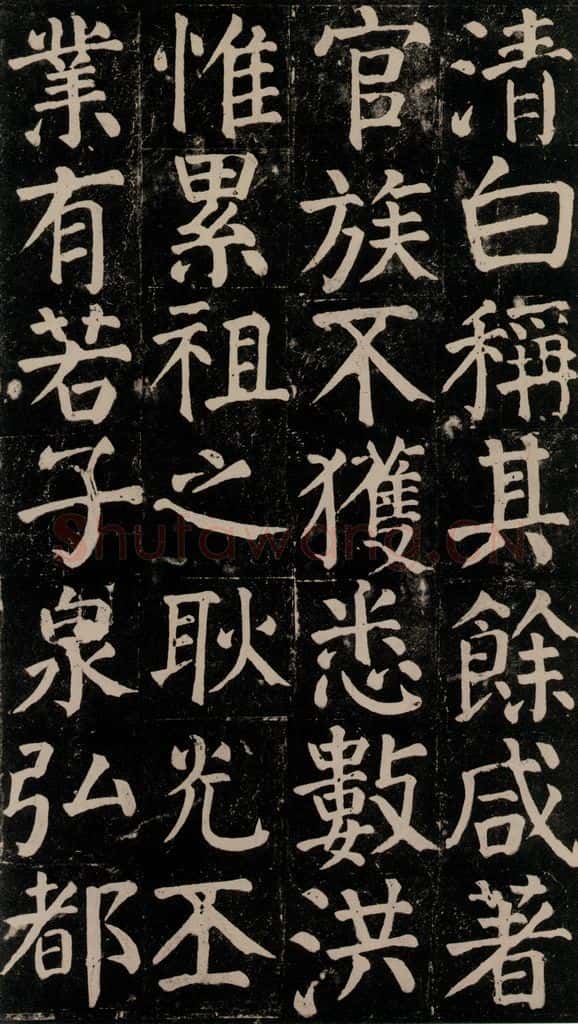 清白稱其餘咸著
官族不獲悉數洪
惟累祖之耿光丕
業有若子泉弘都
Shufawang.CN